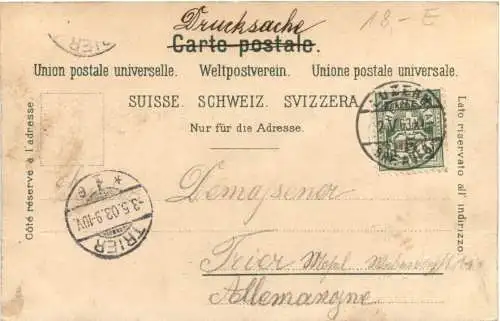 Drucksache
18,- E
TRIER
Carte postale.
Union postale universelle. Weltpostverein. Unione postale universale.
SUISSE. SCHWEIZ. SVIZZERA
Nur für die Adresse.
Côté réservé à l'adresse.
Lato riservato all' indirizzo
LUZERN
TRIER
3.5.03.9-10V.
* e
Trier Mosel
Allemangne